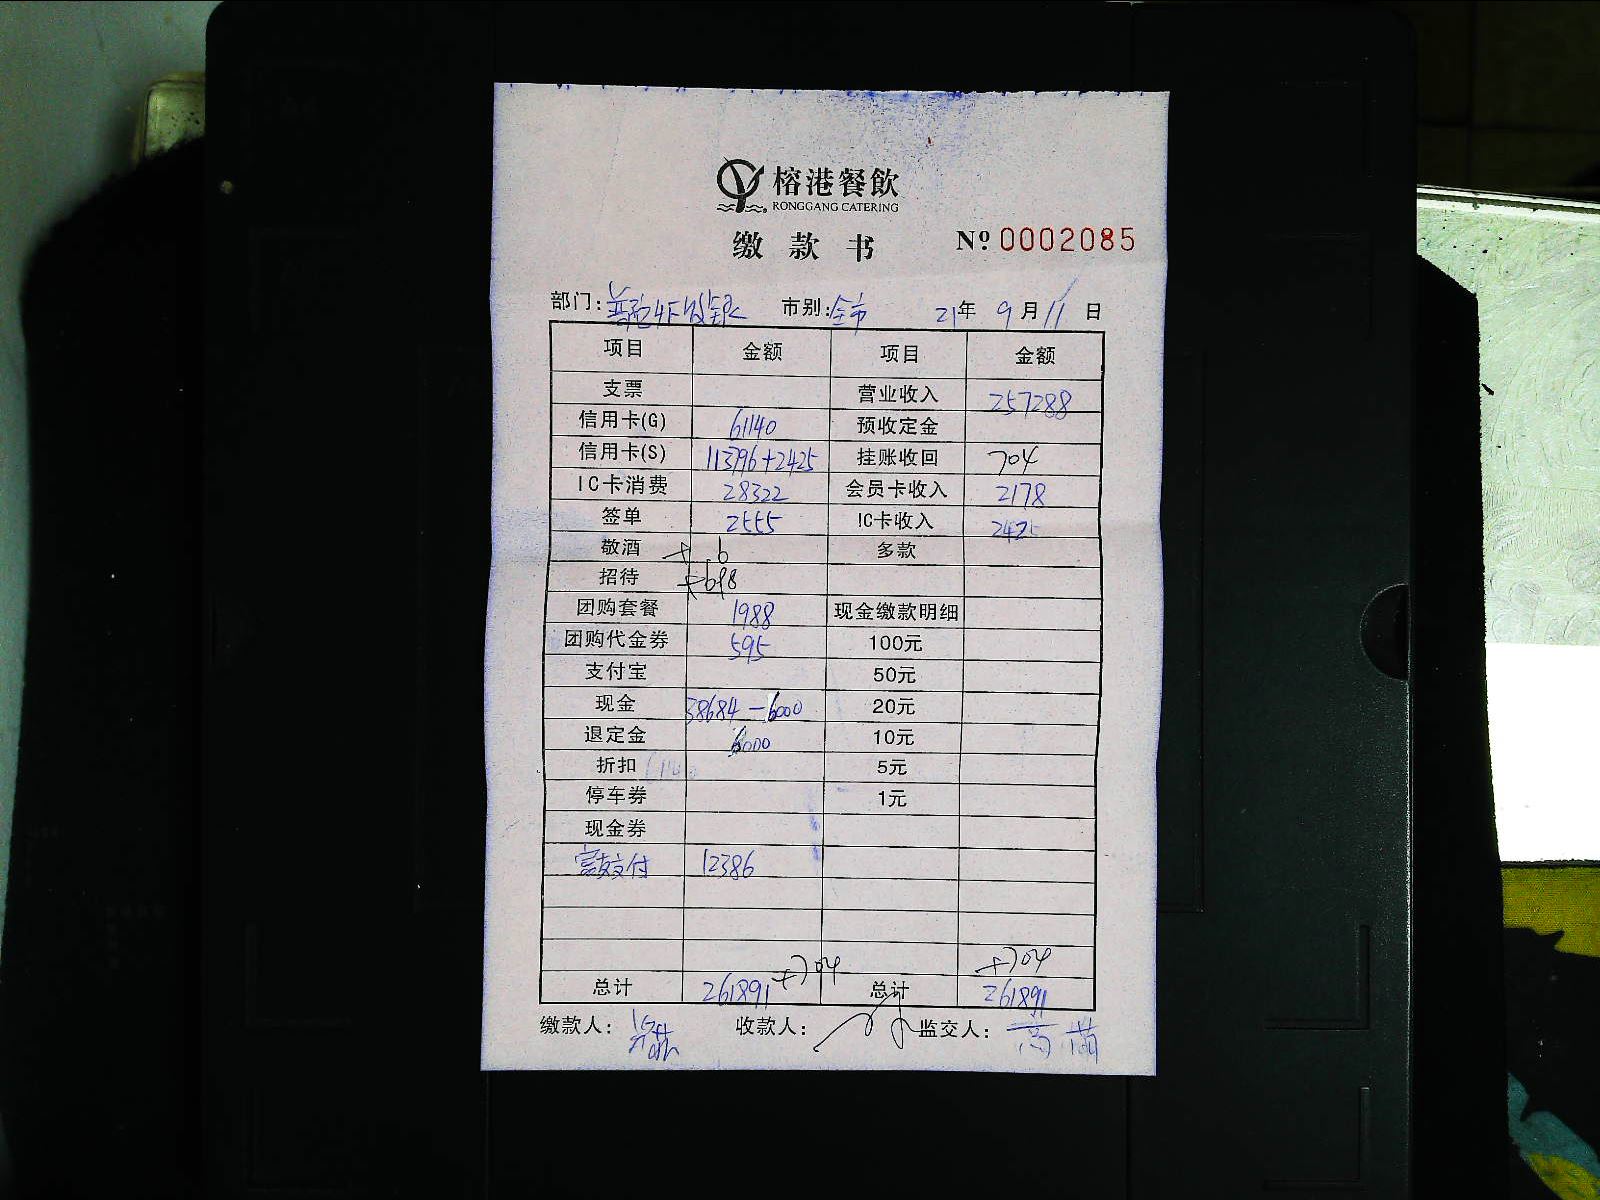 榕港餐飲
RONGGANG CATERING
缴款书 Nº 0002085
部门: 普陀4F收银 市别: 全市 21年 9月11日
项目 金额 项目 金额
支票 营业收入 257288
信用卡(G) 61140 预收定金
信用卡(S) 113796+2425 挂账收回 704
IC卡消费 28322 会员卡收入 2178
签单 2555 IC卡收入 2425
敬酒 +6 多款
招待 +698
团购套餐 1988 现金缴款明细
团购代金券 595 100元
支付宝 50元
现金 38684-6000 20元
退定金 6000 10元
折扣 5元
停车券 1元
现金券
支付 12386
+704
总计 261891 +704 总计 261891
缴款人: 收款人: 监交人: